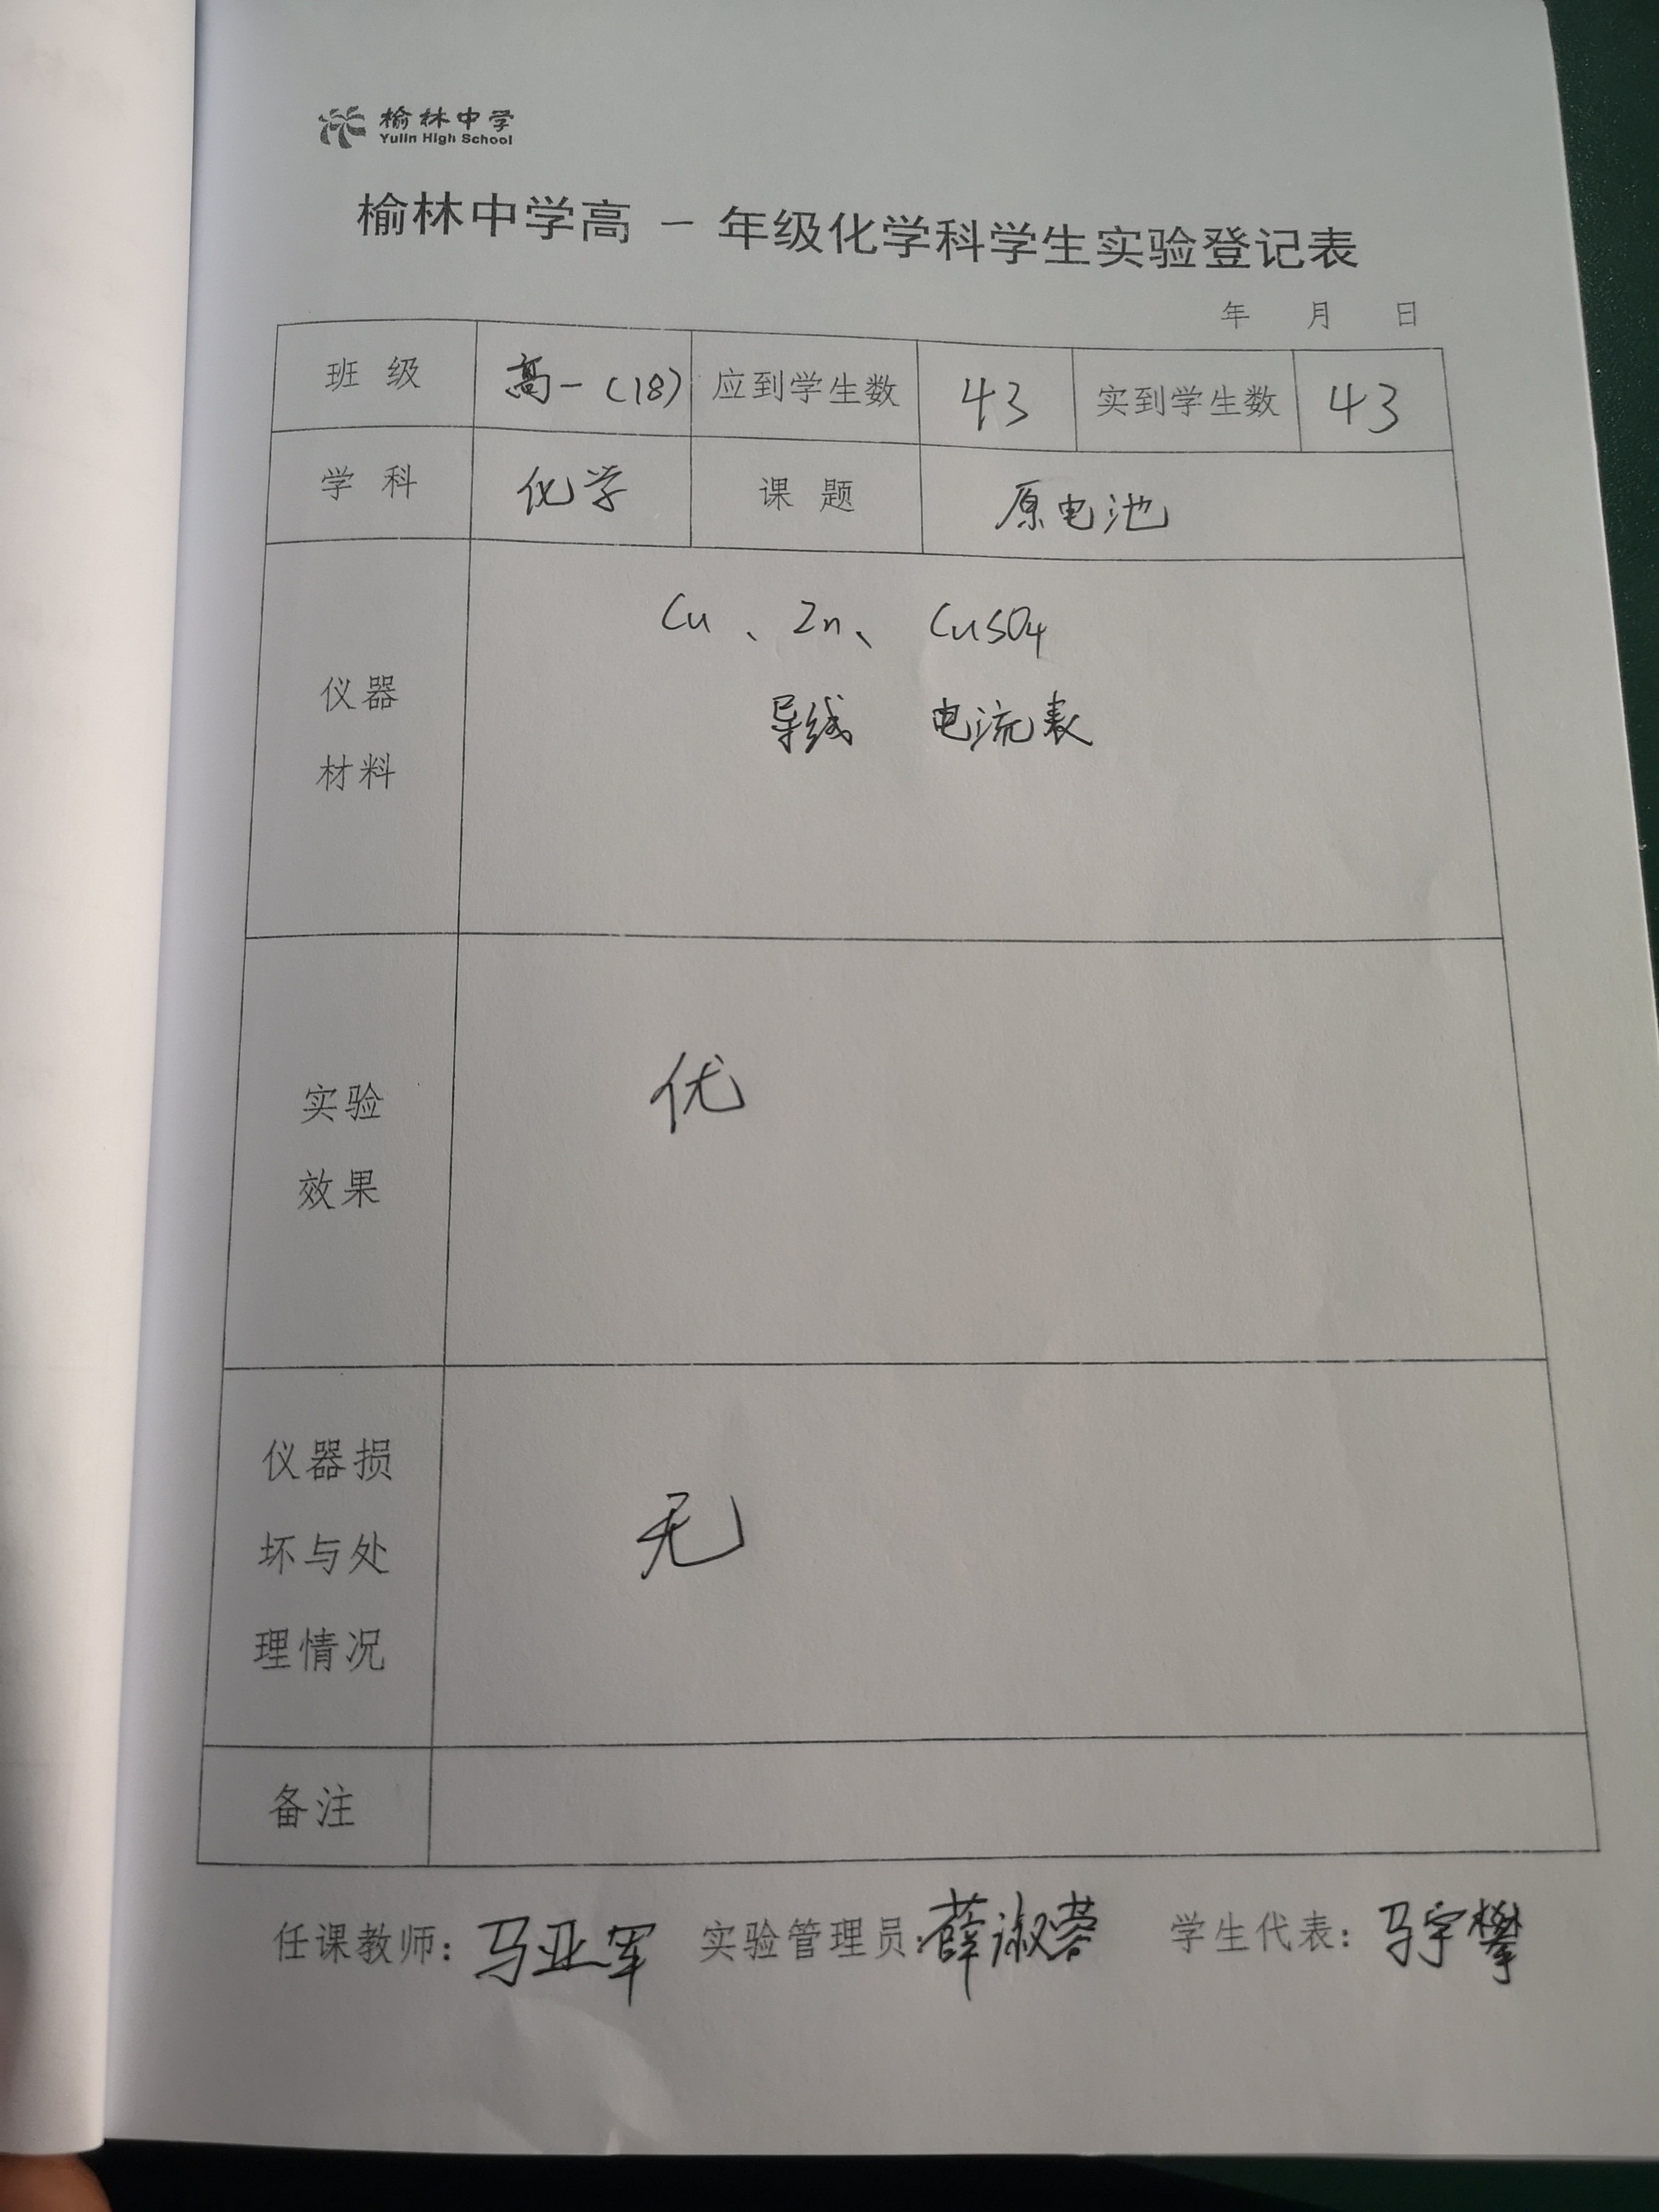 榆林中学
Yulin High School
榆林中学高 一 年级化学科学生实验登记表
年 月 日
班 级 高一(18) 应到学生数 43 实到学生数 43
学 科 化学 课 题 原电池
仪器
材料
Cu、Zn、CuSO4
导线 电流表
实验
效果
优
仪器损
坏与处
理情况
无
备注
任课教师：马亚军 实验管理员：薛淑蓉 学生代表：马宇攀